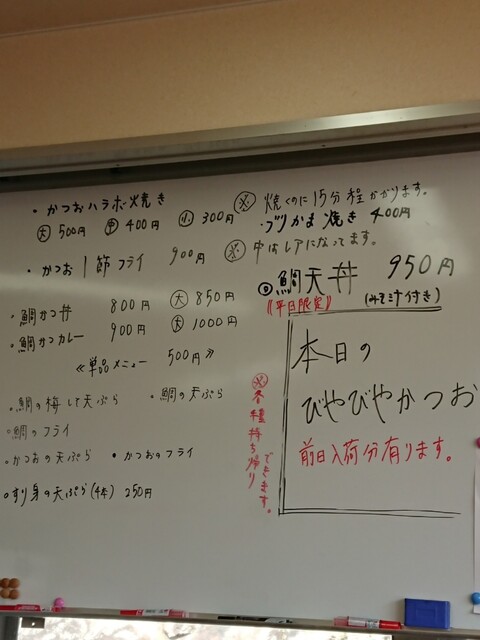 ・かつおハラボ焼き
大 500円 中 400円 小 300円
・かつお1節フライ 900円
・鯛かつ丼 800円 大 850円
・鯛かつカレー 900円 大 1000円
《単品メニュー 500円》
・鯛の梅しそ天ぷら ・鯛の天ぷら
・鯛のフライ
・かつおの天ぷら ・かつおのフライ
・すり身の天ぷら(4本) 250円
※ 焼くのに15分程かかります。
・ブリかま焼き 400円
※ 中はレアになってます。
◎鯛天丼 950円
《平日限定》 (みそ汁付き)
本日の
びやびやかつお
前日入荷分有ります。
※各種持ち帰り
できます。